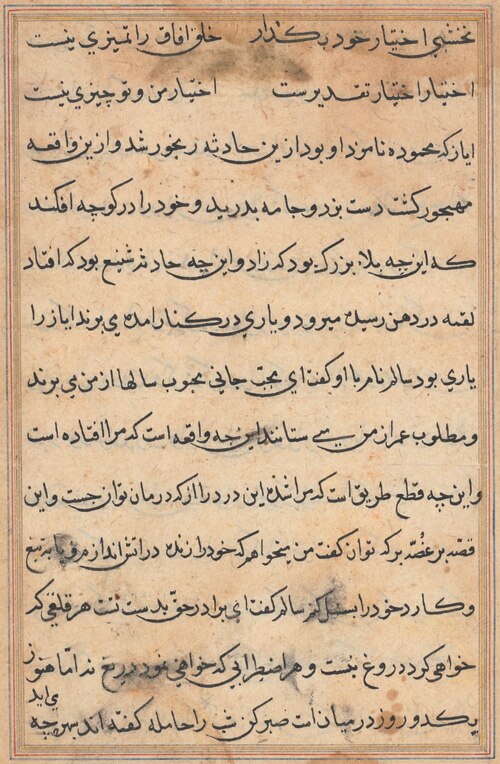 نخشبی اختیار خود بکذار خلق آفاق را تمیزی نیست
اختیار اختیار تقدیرست اختیار من و تو چیزی نیست
ایاز که محموده نامزد او بود ازین حادثه رنجور شد و ازین واقعه
مهجور کشت دست بزد و جامه بدرید و خود را در کوچه افکند
که این چه بلاء بزرک بود که زاد و این چه حادثه شنیع بود که افتاد
لقمه در دهن رسیده میرود و یاری در کنار امده می برند ایاز را
یاری بود سالم نام با او کفت ای محب جانی محبوب سالها از من می برند
و مطلوب عمر از من می ستانند این چه واقعه است که مرا افتاده است
و این چه قطع طریق است که مرا شده این درد را از که درمان توان جست و این
قصه بر غصه بر که توان کفت من میخواهم که خود را زنده در اتش اندازم و یا به تیغ
و کارد خود را بسمل کنم سالم کفت ای برادر حق بدست تست هر قلقی که
خواهی کرد دروغ نیست و هر اضطرابی که خواهی نمود دریغ نه اما هنوز
یکدو روز در میان است صبر کن شب را حامله کفته اند ببین چه
می اید